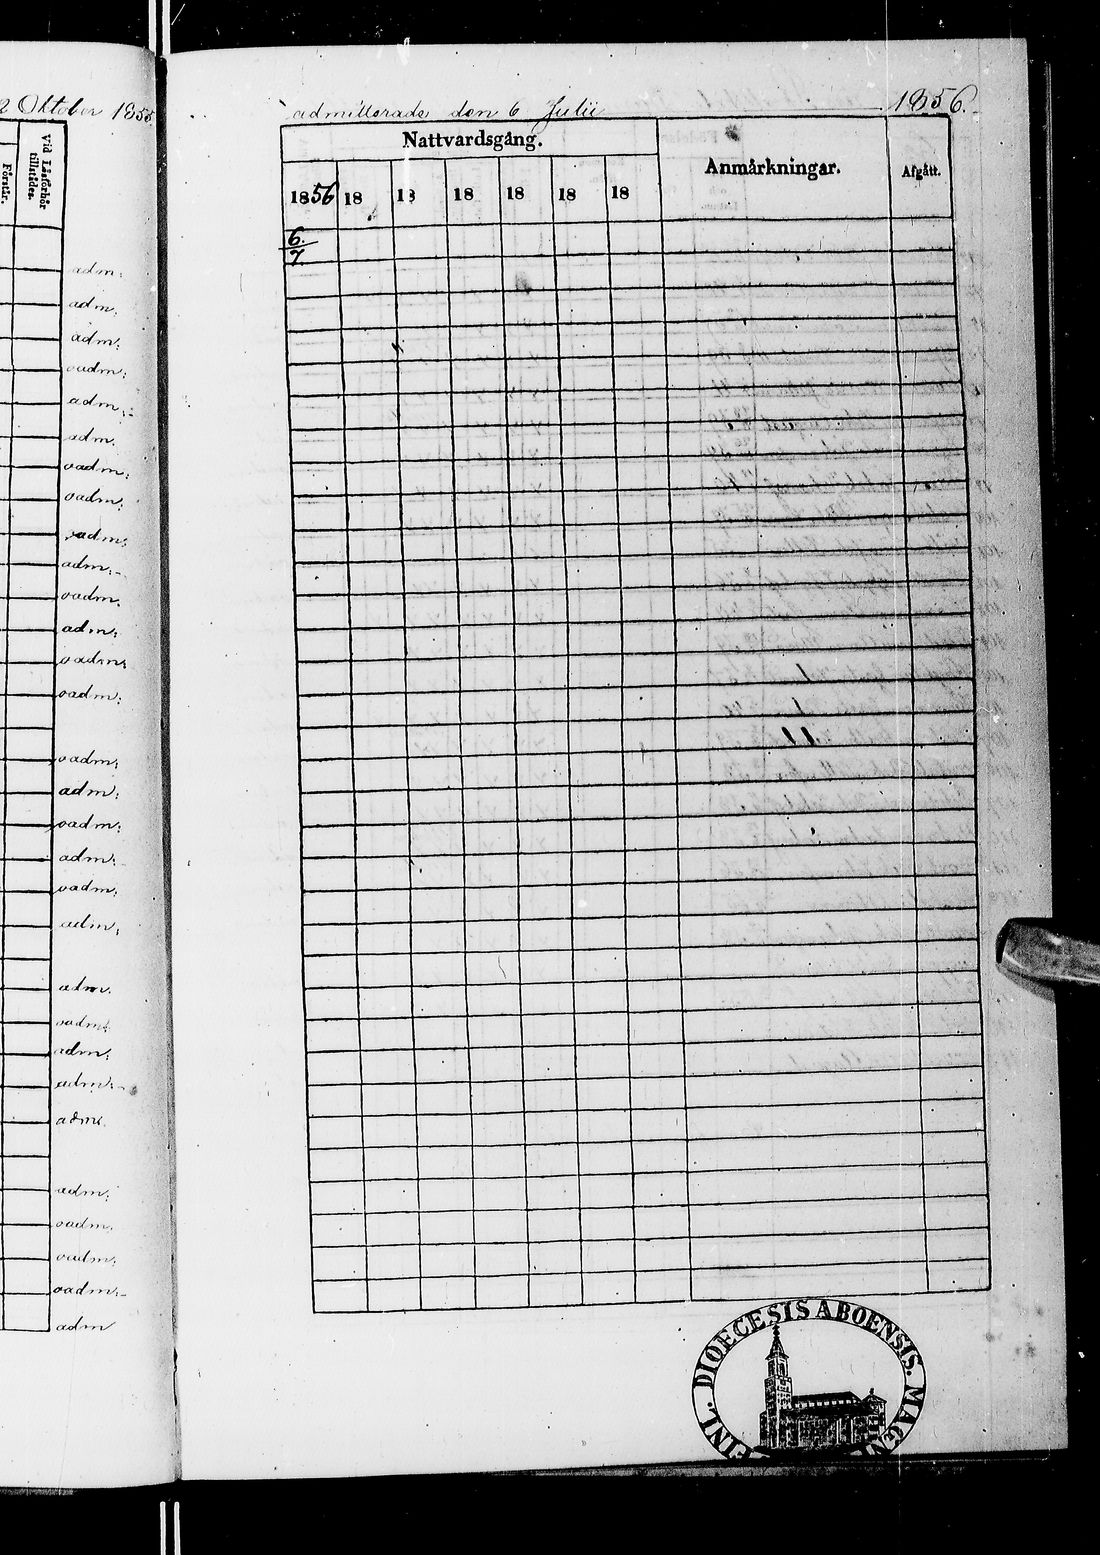 2 Oktober 1855
Vid Läsförhör tillstädes.
Förstår.
adm:
adm.
adm:
oadm:
adm:
adm.
oadm:
oadm:
oadm:
adm:
oadm.
adm:
oadm:
oadm:
oadm:
adm:
oadm:
adm:
oadm:
adm:
adm.
oadm:
adm:
adm:
adm:
adm:
oadm:
oadm:
oadm:
adm
admitterade den 6 Julii 1856.
Nattvardsgång. Anmärkningar. Afgått.
1856 18 18 18 18 18 18
6.
7.
DIOECESIS ABOENSIS. MAGNI
FINL.